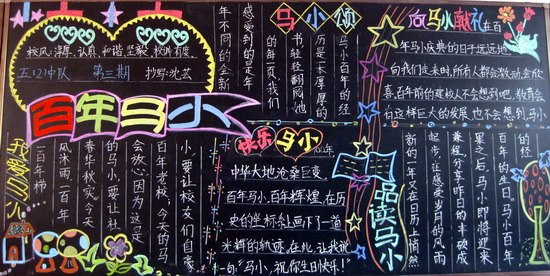 校风:淳厚 认真 和谐 坚毅
五(2)中队 第三期 抄写:沈芸
百年马小
马小颂
马小百年的经
历是一本厚厚的
书,轻轻翻阅她
的每一页,我们
感受到的是年
年不同的全新
向马小献礼
在百
年马小庆典的日子远远地
向我们走来时,所有人都会激动,会欣
喜,百年前的建校人不会想到吧,教育会
向这样巨大的发展,也不会想到,马小
快乐马小
中华大地沧桑巨变,
百年马小,百年辉煌,在历
史的坐标纸上画下了一道
光辉的轨迹,在此,让我说
一句:“马小,祝你生日快乐!”
品读马小
小,要让校友们自豪
百年老校,今天的马
会放心,因为,这是
的马小,要让社
春华秋实。今天
风沐雨一百年
一百年栉
的生日。马小百年
果之后,马小即将迎来
兼程,分享昨日的丰硕成
起步,让感受岁月的风雨
新的一年又在日历上悄然